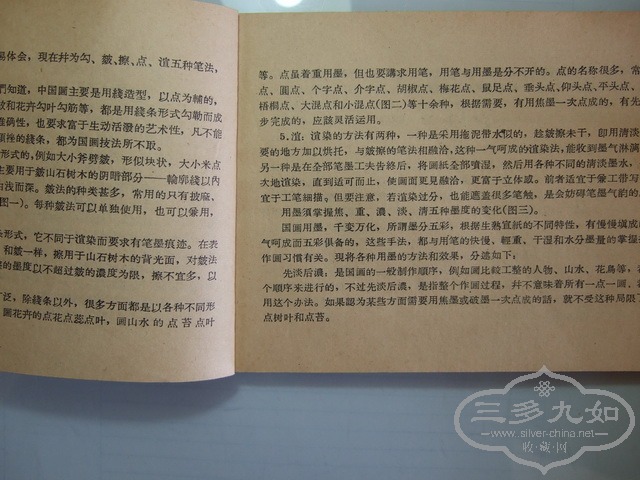 易体会，現在幷为勾、皴、擦、点、渲五种笔法，
們知道，中国画主要是用綫造型，以点为輔的，
皴和花卉勾叶勾筋等，都是用綫条形式勾勒而成
准确性，也要求富于生动活潑的艺术性，凡不能
頓挫的綫条，都为国画技法所不取。
形式的，例如大小斧劈皴，形似块状，大小米点
主要用于皴山石树木的阴暗部分——輪廓綫以內
由浅而深。皴法的种类甚多，常用的只有披麻、
图一）。每种皴法可以单独使用，也可以兼用，
条形式，它不同于渲染而要求有笔墨痕迹。在表
，和皴一样，擦用于山石树木的背光面，对皴法
擦的墨度以不超过皴的濃度为限，擦不宜多，以
广泛，除綫条以外，很多方面都是以各种不同形
：画花卉的点花点蕊点叶，画山水的点苔点叶
等。点虽着重用墨，但也要講求用笔，用笔与用墨是分不开的。点的名称很多，常
点、圆点、个字点、介字点、胡椒点、梅花点、鼠足点、垂头点、仰头点、平头点、
梧桐点、大混点和小混点(图二)等十余种，根据需要，有用焦墨一次点成的，有先
步完成的，应該灵活运用。
5．渲：渲染的方法有两种，一种是采用拖泥带水似的，趁皴擦未干，卽用清淡
要的地方加以烘托，与皴擦的笔法和融洽，这种一气呵成的渲染法，能收到墨气淋漓
另一种是在全部笔墨工夫吿終后，将画紙全部噴湿，然后用各种不同的清淡墨水，
次地渲染，直到适可而止，使画面更見融洽，更富于立体感。前者适宜于兼工带写
宜于工笔細描。但要注意，若渲染过分，也能遮盖很多笔触，是会妨碍笔墨气韵的
用墨須掌握焦、重、濃、淡、清五种墨度的变化(图三)。
国画用墨，千变万化，所謂墨分五彩。根据生熟宣紙的不同特性，有慢慢
气呵成而五彩俱备的，这些手法，都与用笔的快慢、輕重、干湿和水分墨量的掌握
作画习惯有关。現将各种用墨的方法和效果，分述如下：
先淡后濃：是国画的一般制作順序，例如画比較工整的人物、山水、花鳥等，
个順序来进行的，不过先淡后濃，是指整个作画过程，幷不意味着所有一点一画，
用这个办法。如果認为某些方面需要用焦墨或破墨一次点成的話，就不受这种局限
点树叶和点苔。
三多九如
www.silver-china.net
收·藏·网